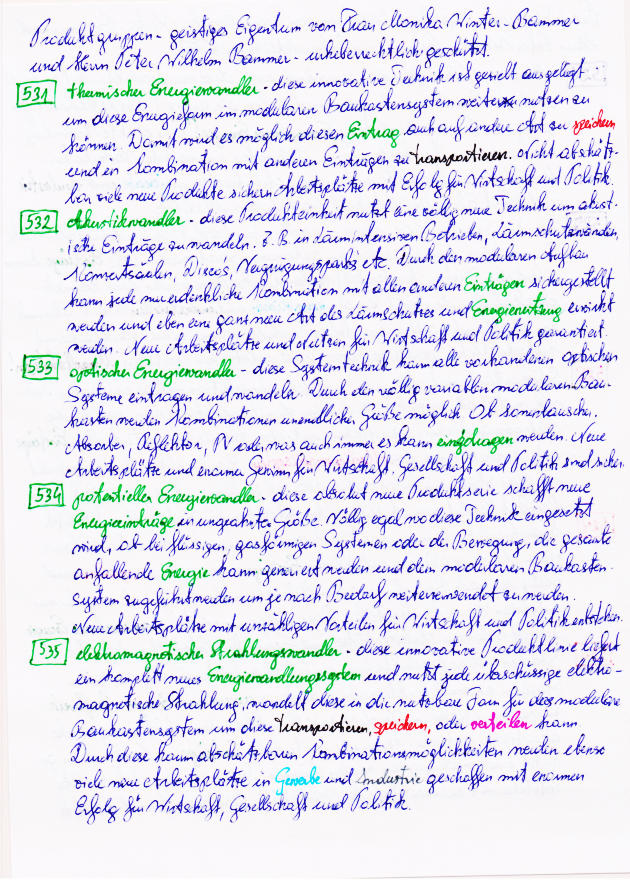 Produktgruppen - geistiges Eigentum von Frau Monika Winter-Bammer
und Herrn Peter Wilhelm Bammer - urheberrechtlich geschützt.
531 thermischer Energiewandler - diese innovative Technik ist gezielt ausgelegt
um diese Energieform im modularen Baukastensystem weiter nutzen zu
können. Damit wird es möglich diesen Eintrag auch auf andere Art zu speichern
und in Kombination mit anderen Einträgen zu transportieren. Nicht abschätz-
bar viele neue Produkte sichern Arbeitsplätze mit Erfolg für Wirtschaft und Politik.
532 Akustikwandler - diese Produkteinheit nutzt eine völlig neue Technik um akust-
ische Einträge zu wandeln. z.B in lärmintensiven Betrieben, Lärmschutzwänden,
Konzertsaalen, Disco's, Vergnügungsparks etc. Durch den modularen Aufbau
kann jede nur erdenkliche Kombination mit allen anderen Einträgen sichergestellt
werden und eben eine ganz neue Art des Lärmschutzes und Energienutzung erwirkt
werden. Neue Arbeitsplätze und Nutzen für Wirtschaft und Politik garantiert.
533 optischer Energiewandler - diese Systemtechnik kann alle vorhandenen optischen
Systeme eintragen und wandeln. Durch den völlig variablen modularen Bau-
kasten werden Kombinationen unendlicher Größe möglich. Ob
Absorber, Reflektor, PV oder was auch immer es kann eingetragen werden. Neue
Arbeitsplätze und enormer Gewinn für Wirtschaft, Gesellschaft und Politik sind sicher.
534 potentieller Energiewandler - diese absolut neue Produktserie schafft neue
Energieeinträge in ungeahnter Größe. Völlig egal wo diese Technik eingesetzt
wird, ob bei flüssigen, gasförmigen Systemen oder der Bewegung, die gesamte
anfallende Energie kann generiert werden und dem modularen Baukasten-
system zugeführt werden um je nach Bedarf weiterverwendet zu werden.
Neue Arbeitsplätze mit unzähligen Vorteilen für Wirtschaft und Politik entstehen.
535 elektromagnetischer Strahlungswandler - diese innovative Produktlinie liefert
ein komplett neues Energiewandlungssystem und nutzt jede überschüssige elektro-
magnetische Strahlung, wandelt diese in die nutzbare Form für das modulare
Baukastensystem um diese transportieren, speichern, oder verteilen kann
Durch diese kaum abschätzbaren Kombinationsmöglichkeiten werden ebenso
viele neue Arbeitsplätze in Gewerbe und Industrie geschaffen mit enormen
Erfolg für Wirtschaft, Gesellschaft und Politik.